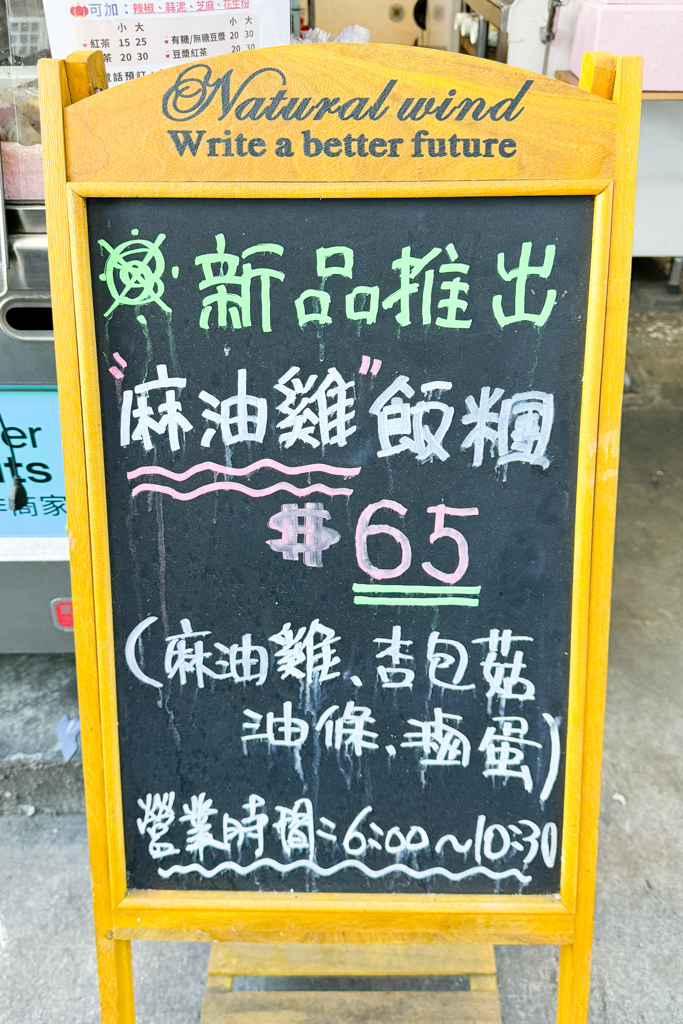 可加：辣椒、蒜泥、芝麻、花生粉
小 大
小 大
紅茶 15 25
有糖/無糖豆漿 20 30
茶 20 30
豆漿紅茶 20 30
電話預訂
Natural wind
Write a better future
新品推出
"麻油雞"飯糰
$65
(麻油雞、杏包菇
油條、滷蛋)
營業時間:6:00～10:30
er
ts
商家